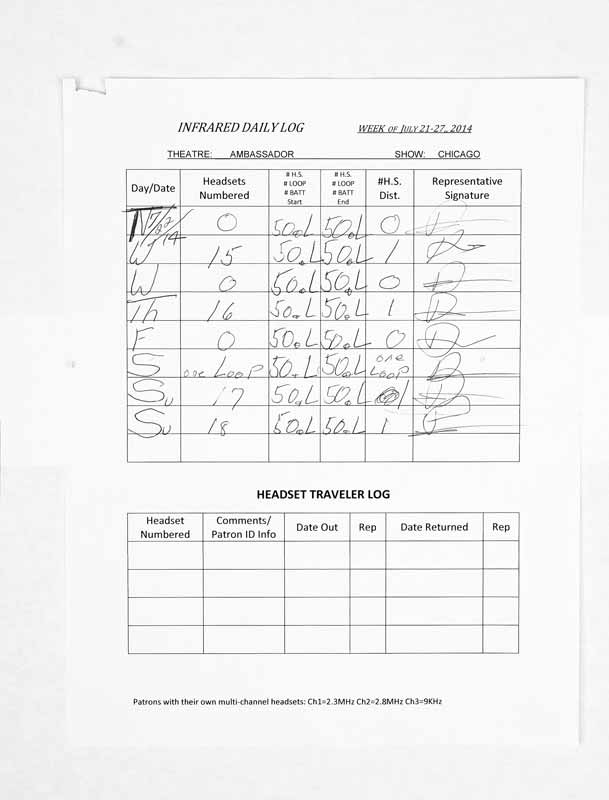 INFRARED DAILY LOG WEEK OF JULY 21-27, 2014
THEATRE: AMBASSADOR SHOW: CHICAGO
Day/Date Headsets Numbered # H.S. # LOOP # BATT Start # H.S. # LOOP # BATT End #H.S. Dist. Representative Signature
7/22/14 0 0
W 15 1
W 0 0
Th 16 1
F 0 0
S one LOOP one LOOP
Su 17 1
Su 18 1
HEADSET TRAVELER LOG
Headset Numbered Comments/ Patron ID Info Date Out Rep Date Returned Rep
Patrons with their own multi-channel headsets: Ch1=2.3MHz Ch2=2.8MHz Ch3=9KHz